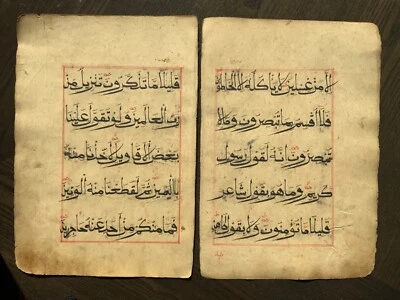 الا من غسلين لا ياكله الا الخاطئون
فلا اقسم بما تبصرون وما لا
تبصرون انه لقول رسول
كريم وما هو بقول شاعر
قليلا ما تؤمنون ولا بقول كاهن
قليلا ما تذكرون تنزيل من
رب العالمين ولو تقول علينا
بعض الاقاويل لاخذنا منه
باليمين ثم لقطعنا منه الوتين
فما منكم من احد عنه حاجزين